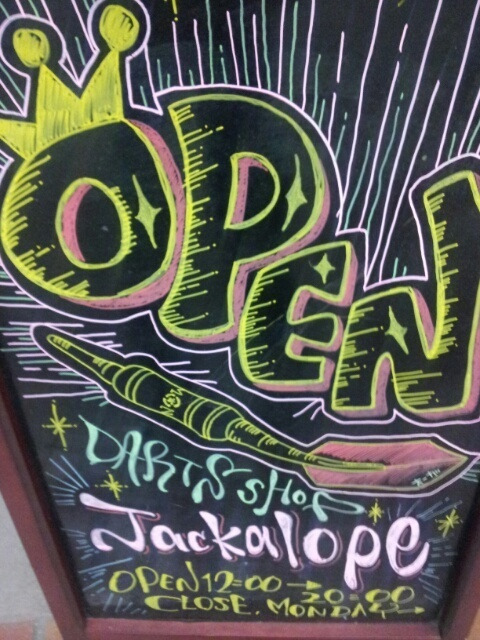 OPEN
NOW
DARTS SHOP
Jackalope
OPEN 12=00 → 20=00
CLOSE. MONDAY